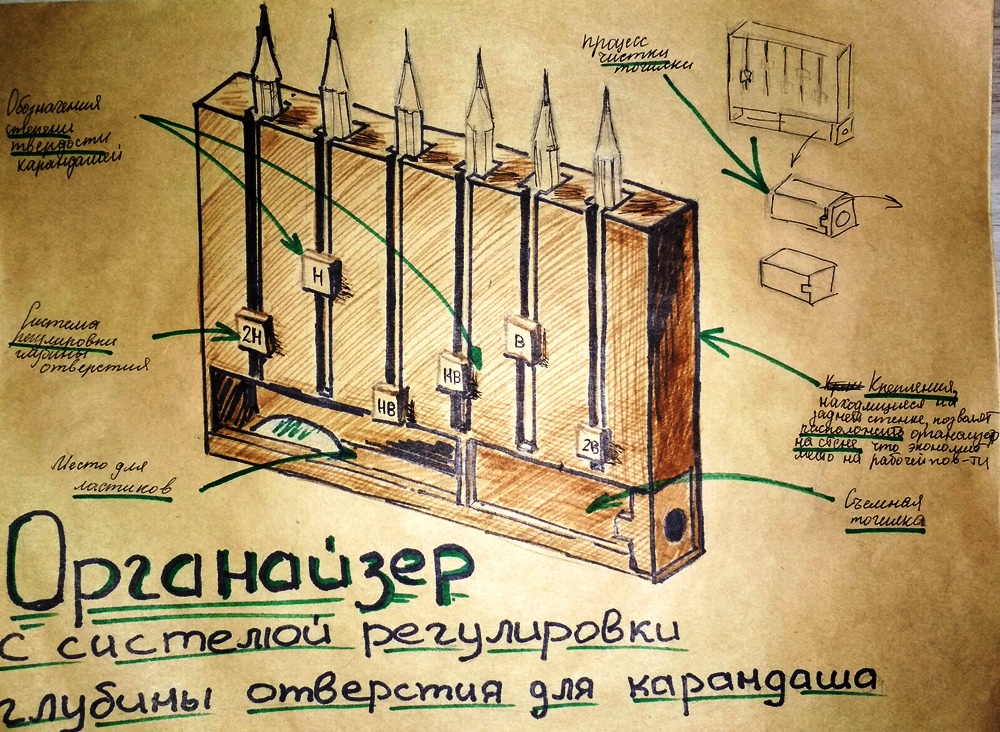 Обозначения
степени
твердости
карандашей
процесс
чистки
точилки
H
2H
B
HB
HB
2B
Система
регулировки
глубины
отверстия
Крепления,
находящиеся на
задней стенке, позволят
расположить органайзер
на стене, что экономит
место на рабочей пов-ти
Место для
ластиков
Съемная
точилка
Органайзер
с системой регулировки
глубины отверстия для карандаша